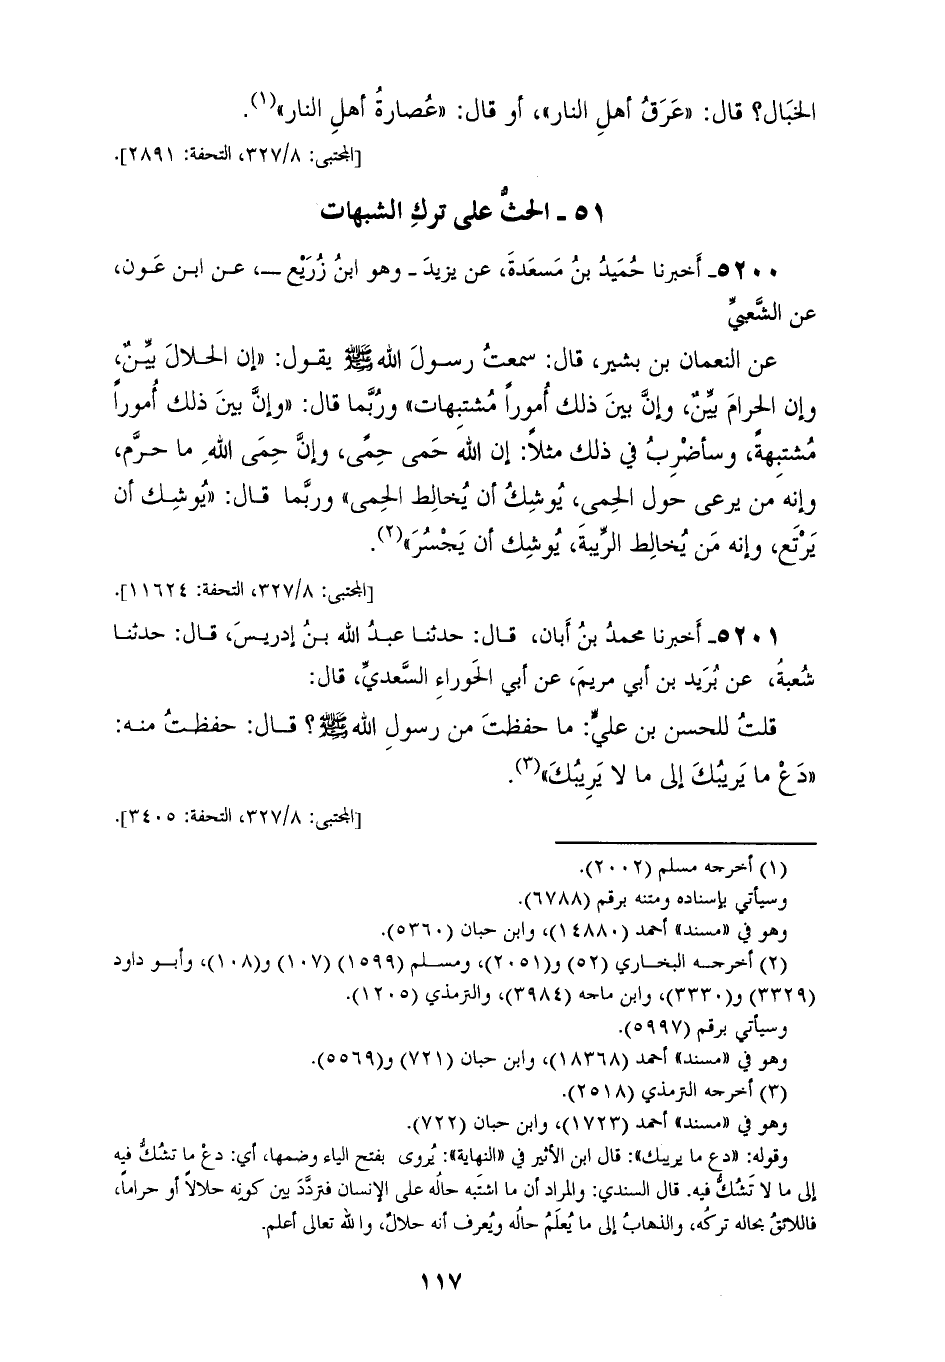 الخَبَال؟ قال: «عَرَقُ أهلِ النار»، أو قال: «عُصارةُ أهلِ النار»(١).
[المجتبى: ٣٢٧/٨، التحفة: ٢٨٩١].
٥١ ـ الحثُّ على تركِ الشبهات
٥٢٠٠ـ أَخبرنا حُمَيدُ بنُ مَسعَدةَ، عن يزيدَ ـ وهو ابنُ زُرَيْع ـ، عن ابن عَون،
عن الشَّعبيِّ
عن النعمان بن بشير، قال: سمعتُ رسولَ الله ﷺ يقول: «إن الحلالَ بيِّنٌ،
وإن الحرامَ بيِّنٌ، وإنَّ بينَ ذلك أُموراً مُشتبِهات» ورُبَّما قال: «وإنَّ بينَ ذلك أُموراً
مُشتبِهةً، وسأضْرِبُ في ذلك مثلاً: إن الله حَمى حِمًى، وإنَّ حِمَى اللهِ ما حرَّم،
وإنه من يرعى حول الحِمى، يُوشِكُ أن يُخالِط الحِمى» وربَّما قال: «يُوشِك أن
يَرْتَع، وإنه مَن يُخالِط الرِّيبةَ، يُوشِك أن يَجْسُرَ»(٢).
[المجتبى: ٣٢٧/٨، التحفة: ١١٦٢٤].
٥٢٠١ـ أَخبرنا محمدُ بنُ أَبان، قال: حدثنا عبدُ الله بنُ إدريسَ، قال: حدثنا
شعبةُ، عن بُرَيد بن أبي مريمَ، عن أبي الحَوراءِ السَّعديِّ، قال:
قلتُ للحسن بن عليٍّ: ما حفظتَ من رسولِ الله ﷺ؟ قال: حفظتُ منه:
«دَعْ ما يَريبُكَ إلى ما لا يَرِيبُكَ»(٣).
[المجتبى: ٣٢٧/٨، التحفة: ٣٤٠٥].
(١) أخرجه مسلم (٢٠٠٢).
وسيأتي بإسناده ومتنه برقم (٦٧٨٨).
وهو في «مسند» أحمد (١٤٨٨٠)، وابن حبان (٥٣٦٠).
(٢) أخرجه البخاري (٥٢) و(٢٠٥١)، ومسلم (١٥٩٩) (١٠٧) و(١٠٨)، وأبو داود
(٣٣٢٩) و(٣٣٣٠)، وابن ماجه (٣٩٨٤)، والترمذي (١٢٠٥).
وسيأتي برقم (٥٩٩٧).
وهو في «مسند» أحمد (١٨٣٦٨)، وابن حبان (٧٢١) و(٥٥٦٩).
(٣) أخرجه الترمذي (٢٥١٨).
وهو في «مسند» أحمد (١٧٢٣)، وابن حبان (٧٢٢).
وقوله: «دع ما يريبك»: قال ابن الأثير في «النهاية»: يُروى بفتح الياء وضمها، أي: دعْ ما تشكُّ فيه
إلى ما لا تَشكُّ فيه. قال السندي: والمراد أن ما اشتَبه حالُه على الإنسان فتردَّدَ بين كونِه حلالاً أو حراماً،
فاللائقُ بحاله تركُه، والذهابُ إلى ما يُعلَمُ حالُه ويُعرف أنه حلالٌ، والله تعالى أعلم.
١١٧